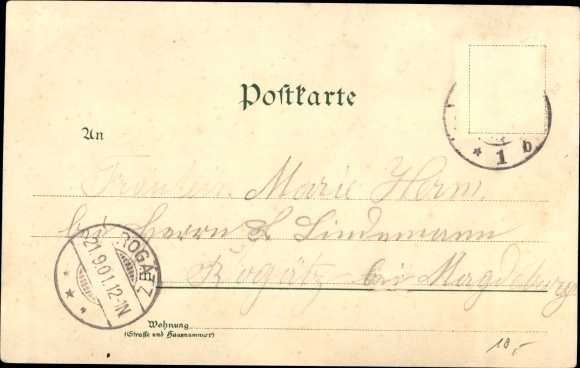 Postkarte
* 1 b
An
Fräulein Marie Herm.
bei Herrn L Lindemann
Rogätz bei Magdeburg
ROGÄTZ
21.9.01.12-1N.
Wohnung
(Straße und Hausnummer)
10,-